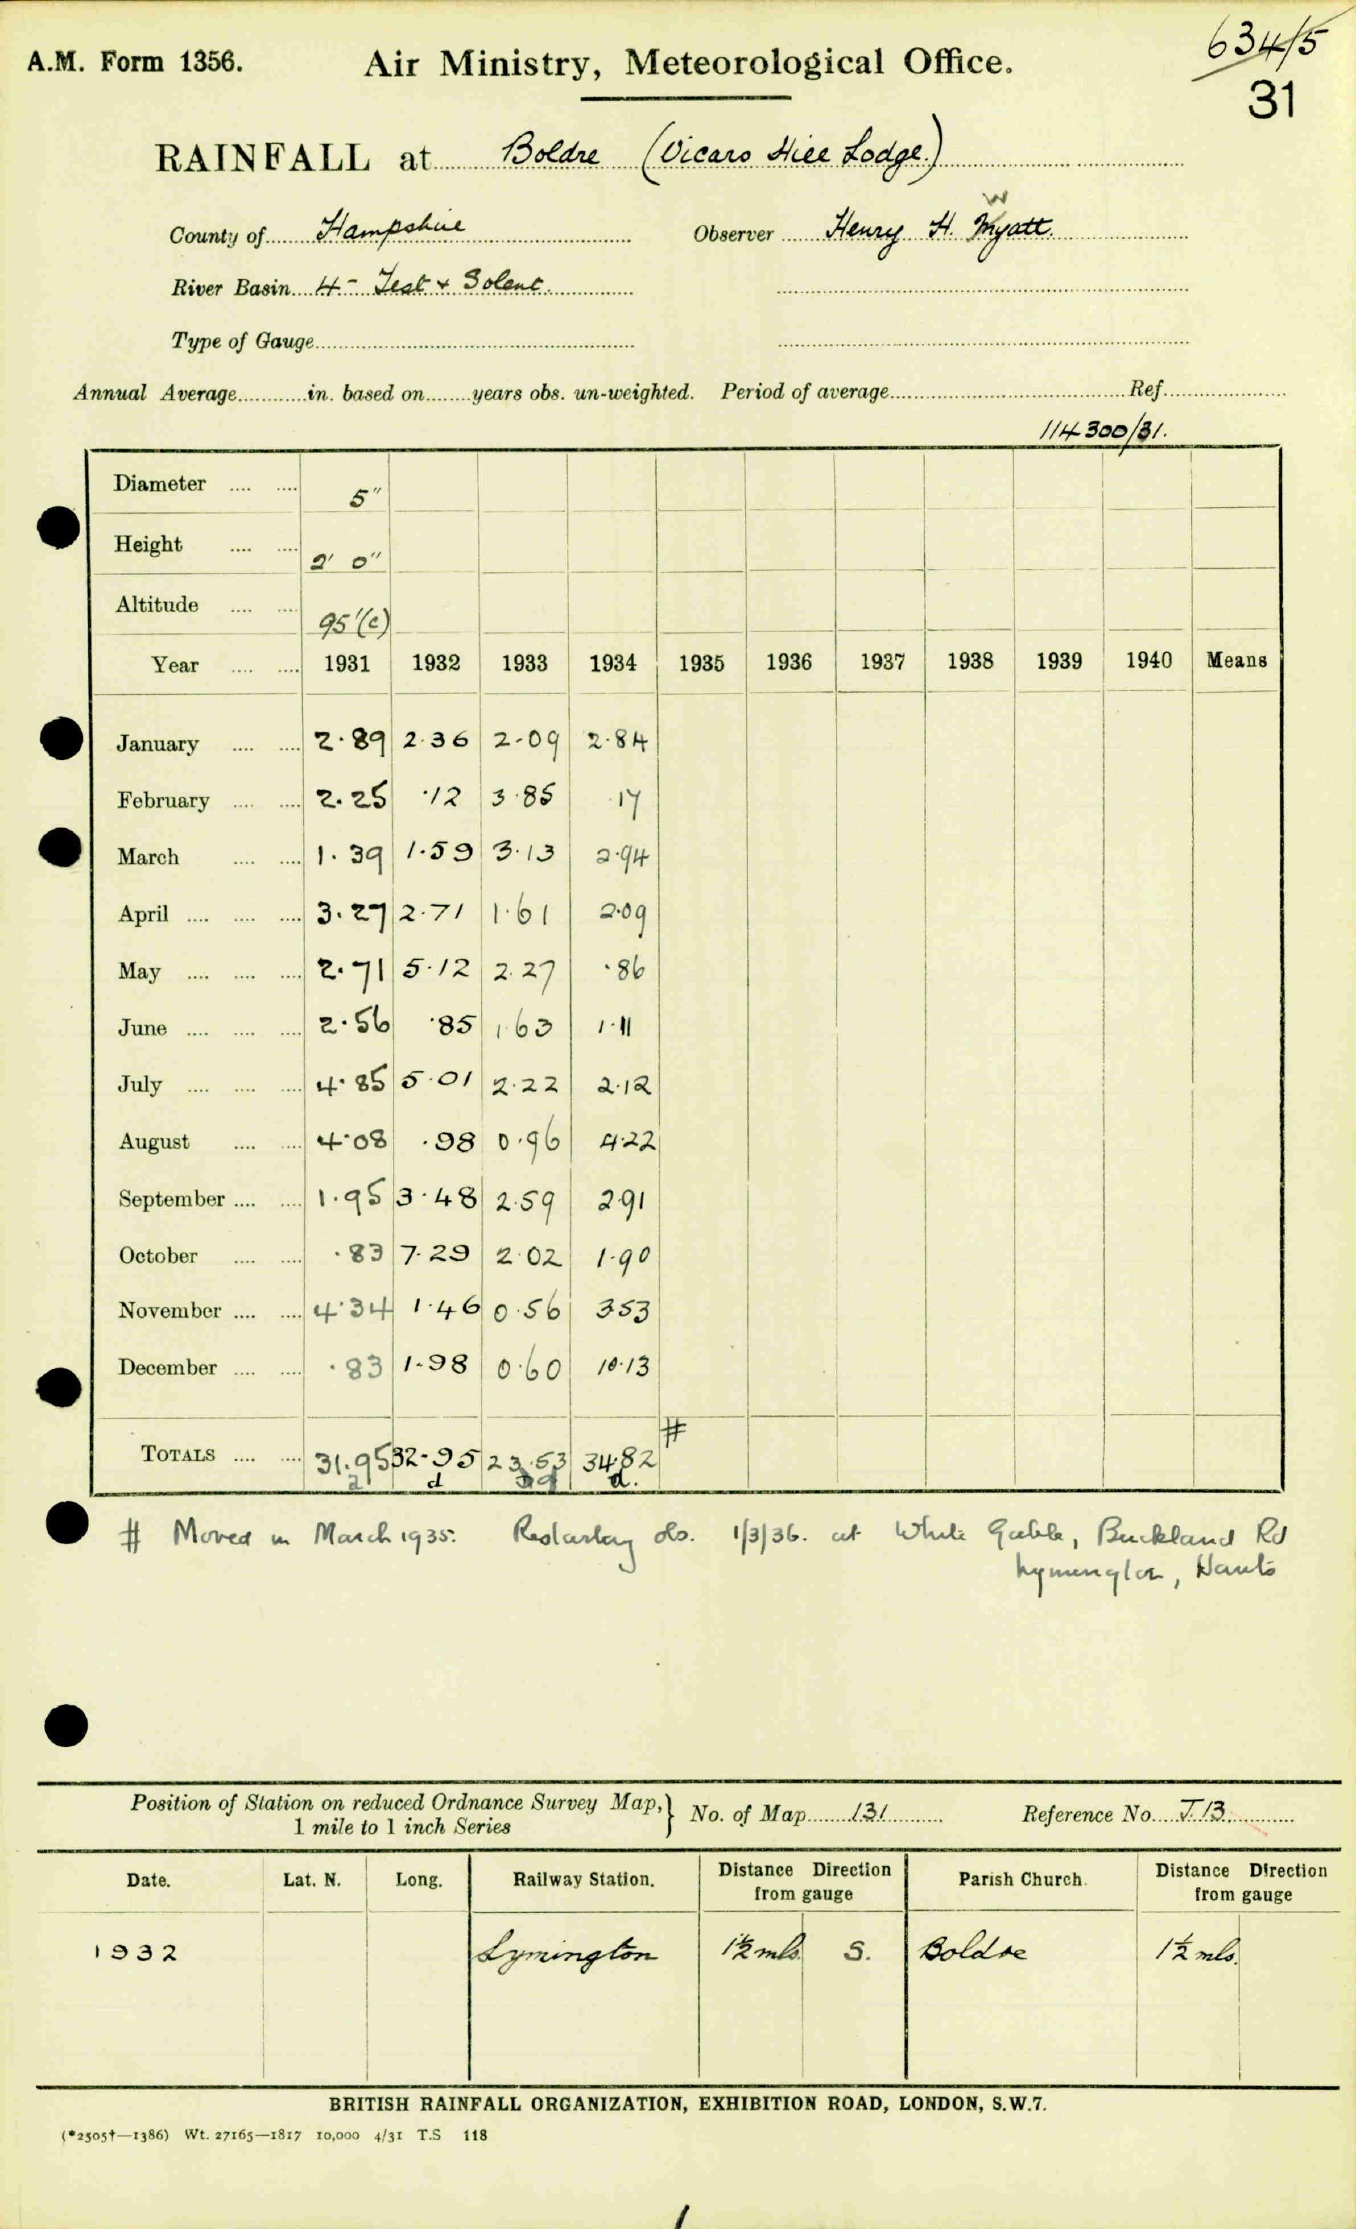 634/5
A.M. Form 1356. Air Ministry, Meteorological Office.
31
RAINFALL at Boldre (Vicars Hill Lodge)
County of Hampshire Observer Henry H. Wyatt.
River Basin 4 - Test + Solent.
Type of Gauge
Annual Average in. based on years obs. un-weighted. Period of average Ref.
114300/31.
Diameter 5"
Height 2' 0"
Altitude 95'(c)
Year 1931 1932 1933 1934 1935 1936 1937 1938 1939 1940 Means
January 2.89 2.36 2.09 2.84
February 2.25 .12 3.85 .17
March 1.39 1.59 3.13 2.94
April 3.27 2.71 1.61 2.09
May 2.71 5.12 2.27 .86
June 2.56 .85 1.63 1.11
July 4.85 5.01 2.22 2.12
August 4.08 .98 0.96 4.22
September 1.95 3.48 2.59 2.91
October .83 7.29 2.02 1.90
November 4.34 1.46 0.56 3.53
December .83 1.98 0.60 10.13
TOTALS 31.95 32.95 23.53 34.82 #
d d.
# Moved in March 1935. Restarting obs. 1/3/36. at White Gable, Buckland Rd
Lymington, Hants
Position of Station on reduced Ordnance Survey Map, } No. of Map 131 Reference No. J.13.
1 mile to 1 inch Series
Date. Lat. N. Long. Railway Station. Distance Direction from gauge Parish Church. Distance Direction from gauge
1932 Lymington 1½ mls. S. Boldre 1½ mls.
BRITISH RAINFALL ORGANIZATION, EXHIBITION ROAD, LONDON, S.W.7.
(*2505†—1386) Wt. 27165—1817 10,000 4/31 T.S 118